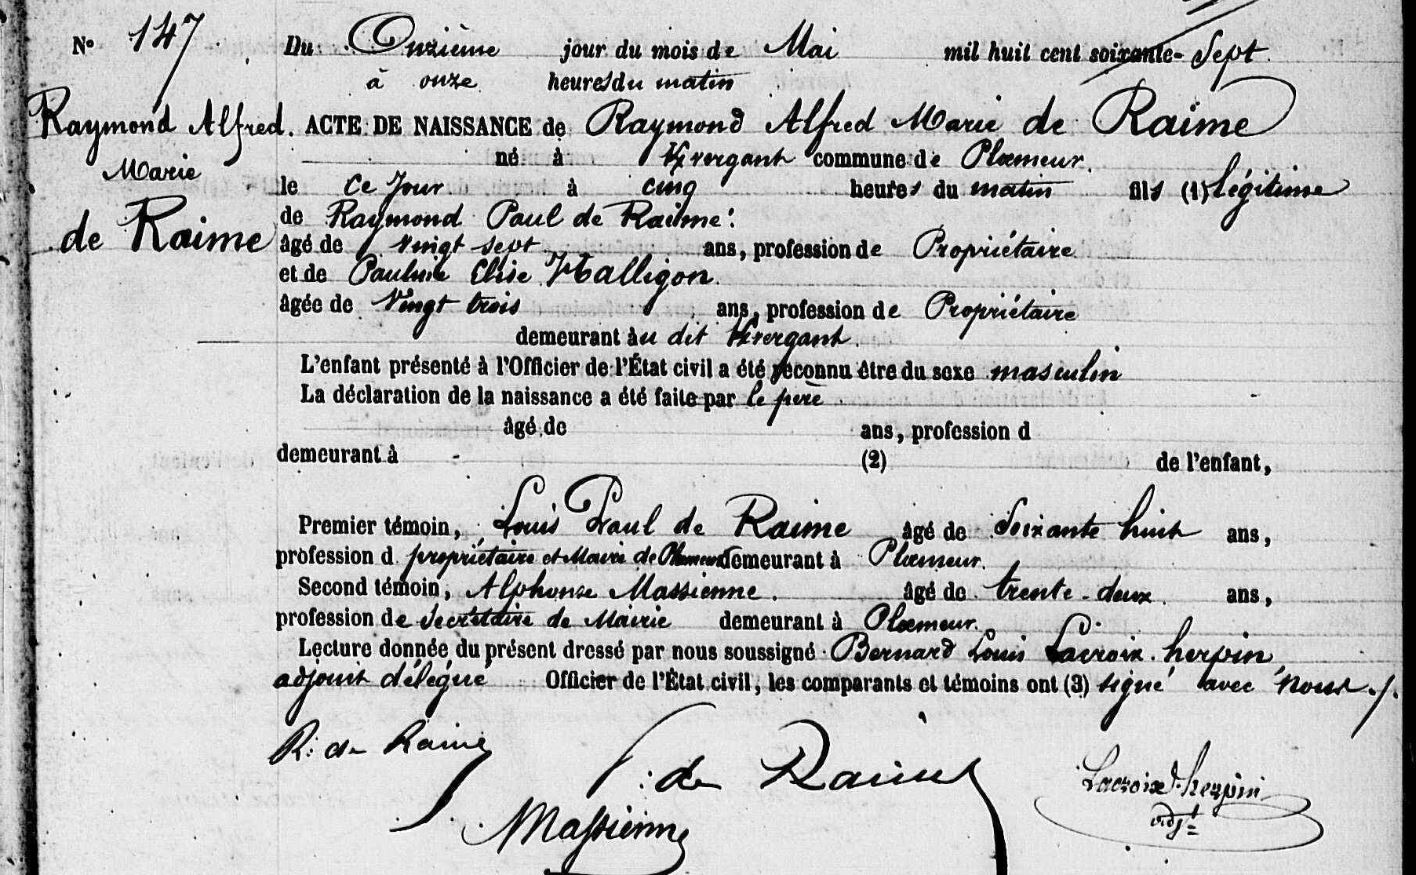 N° 147 Du Onzième jour du mois de Mai mil huit cent soixante- Sept
à onze heures du matin
Raymond Alfred Marie de Raime
ACTE DE NAISSANCE de Raymond Alfred Marie de Raime
né à Kvergant commune de Plœmeur.
le Ce Jour à cinq heures du matin fils (1) légitime
de Raymond Paul de Raime
âgé de Vingt sept ans, profession de Propriétaire
et de Pauline Elise Halligon.
âgée de Vingt trois ans, profession de Propriétaire
demeurant au dit Kvergant.
L'enfant présenté à l'Officier de l'État civil a été reconnu être du sexe masculin
La déclaration de la naissance a été faite par le père
âgé de ans, profession d
demeurant à - (2) de l'enfant,
Premier témoin, Louis Paul de Raime âgé de Soixante huit ans,
profession d propriétaire et Maire de Plœmeur demeurant à Plœmeur.
Second témoin, Alphonse Massienne. âgé de trente-deux ans,
profession de Secrétaire de Mairie demeurant à Plœmeur.
Lecture donnée du présent dressé par nous soussigné Bernard Louis Lacroix herpin,
adjoint délégué Officier de l'État civil, les comparants et témoins ont (3) signé avec Nous ./.
R: de Raime
de Raime
Lacroix herpin
adjt
Massienne